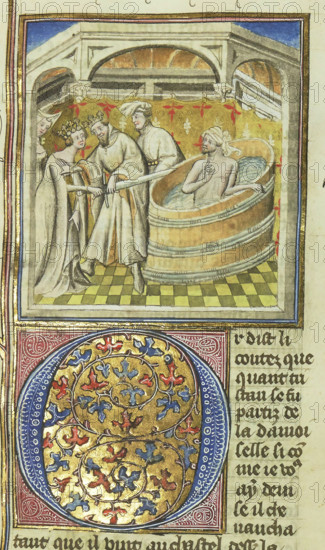 Or dist li
contez que
quant tri
stan se fu
partiz de
la damoi
selle si cõ
me ie voꝰ
ay deui
se il che
uaucha
tant que il vint au chastel de la